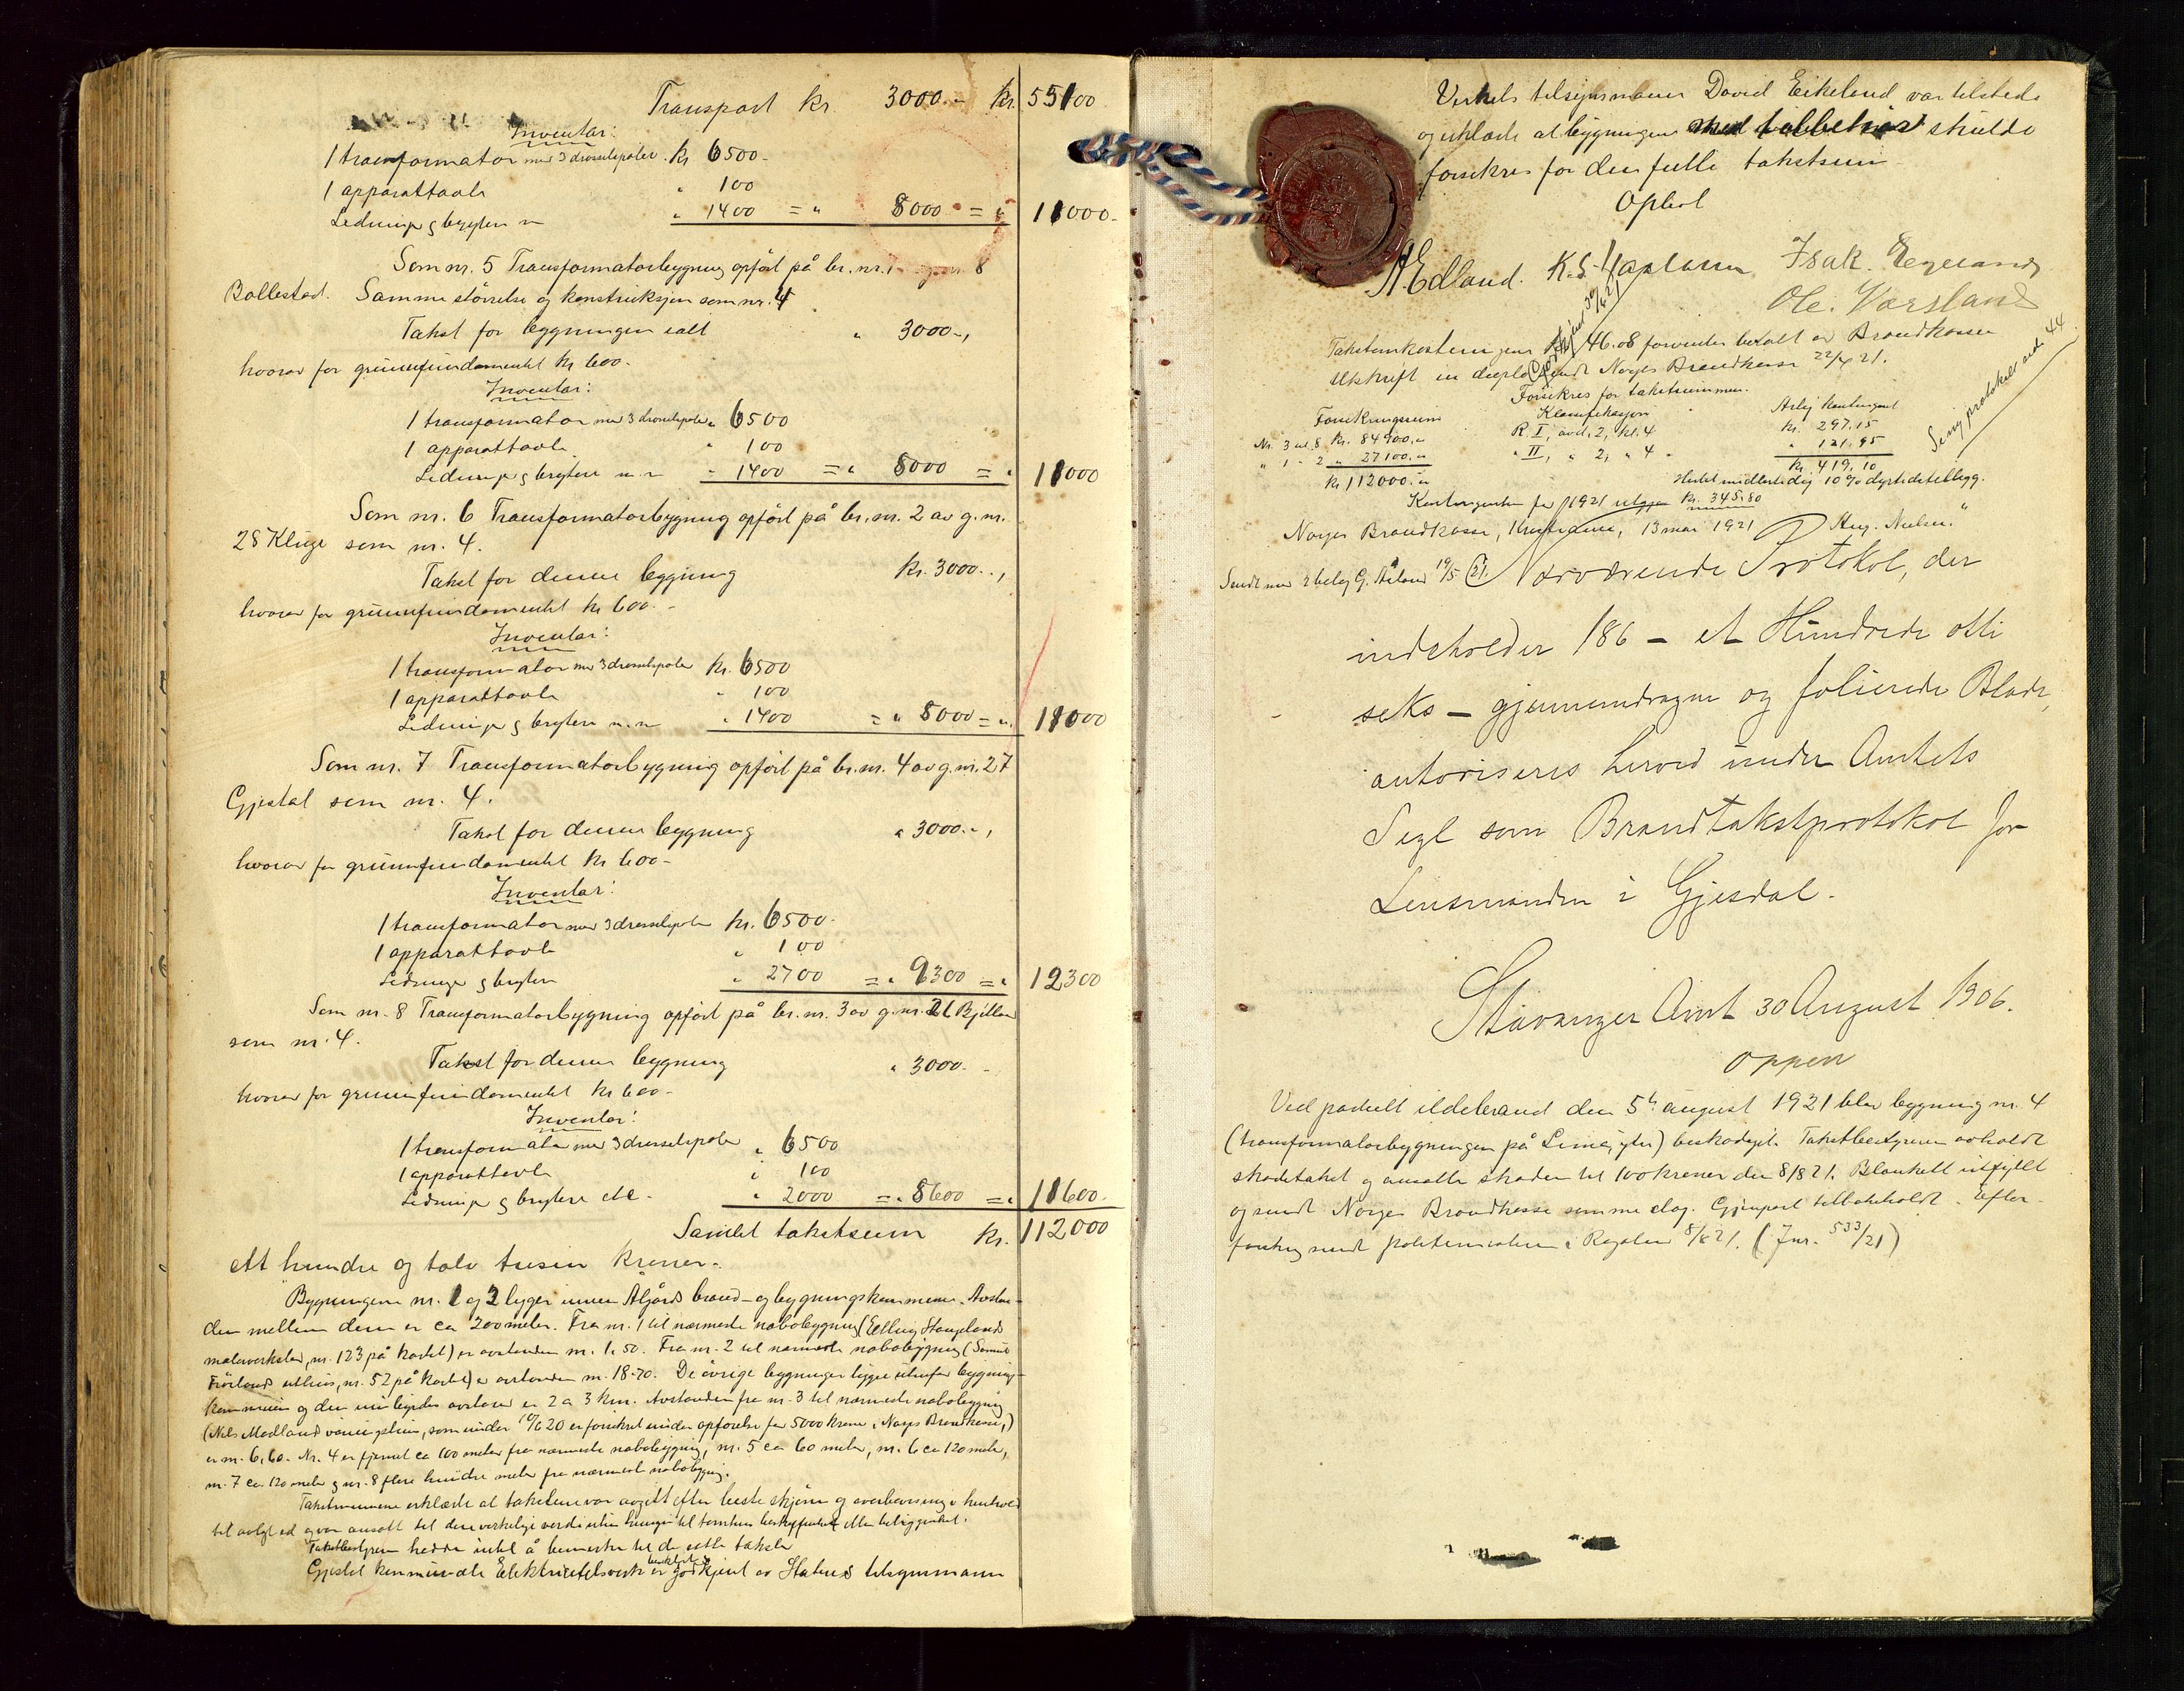 Transport kr. 3000.- kr. 55100
Inventar:
1 transformator med 3 drosselspoler kr 6500.-
1 apparattavle " 100
Ledninger & brytere m " 1400 = " 8000 = " 11000.-
Som nr. 5 Transformatorbygning opført på br. nr. 1 g. nr. 8
Bollestad. Samme størrelse og konstruksjon som nr. 4
Takst for bygningen ialt " 3000.-,
hvorav for grunnfundamentet kr 600.-
Inventar:
1 transformator med 3 drosselspoler " 6500
1 apparattavle " 100
Ledninger & brytere m.m " 1400 = " 8000 = " 11000
Som nr. 6 Transformatorbygning opført på br. nr. 2 av g. nr.
28 Kluge som nr. 4.
Takst for denne bygning kr. 3000.-,
hvorav for grunnfundamentet kr 600.-
Inventar:
1 transformator med 3 drosselspoler kr. 6500
1 apparattavle " 100
Ledninger & brytere m.m " 1400 = " 8000 = " 11000
Som nr. 7 Transformatorbygning opført på br. nr. 4 av g. nr. 27
Gjesdal som nr. 4.
Takst for denne bygning " 3000.-,
hvorav for grunnfundamentet kr 600.-
Inventar:
1 transformator med 3 drosselspoler kr. 6500.-
1 apparattavle " 100
Ledninger & brytere " 2700 = " 9300 = " 12300
Som nr. 8 Transformatorbygning opført på br. nr. 3 av g. nr. 21
som nr. 4.
Takst for denne bygning " 3000.-
hvorav for grunnfundamentet kr 600.-
Inventar:
1 transformator med 3 drosselspoler " 6500
1 apparattavle " 100
Ledninger & brytere etc. " 2000 = " 8600 = " 11600.-
Samlet takstsum kr. 112000
ett hundre og tolv tusen kroner.
Bygningene nr. 1 og 2 ligger innen Ålgårds brand- og bygningskommune. Avstan-
den mellem dem er ca 200 meter. Fra nr. 1 til nærmeste nabobygning (Elling Haugelands
malerverksted, nr. 123 på kartet) er avstanden m. 1.50. Fra nr. 2 til nærmeste nabobygning (
uthus, nr. 52 på kartet) er avstanden m. 18.70. De øvrige bygninger ligger utenfor bygnings-
kommunen og den innbyrdes avstand er 2 a 3 km. Avstanden fra nr. 3 til nærmeste nabobygning
(Nils Modland våningshus, som under er forsikret under opførelse for 5000 kroner i Norges Brandkasse,)
er m. 6.60. Nr. 4 er fjernet ca 100 meter fra nærmeste nabobygning, nr. 5 ca 60 meter, nr. 6 ca 120 meter,
nr. 7 ca 120 meter & nr. 8 flere hundre meter fra nærmeste nabobygning.
Takstmennene erklærte at takstene var avgitt efter beste skjønn og overbevisning i henhold
til avlagt ed og var ansatt til den virkelige verdi uten hensyn til tomtens beskaffenhet eller beliggenhet.
Takstbestyreren hadde intet å bemerke til de satte takster
Gjesdal kommunale Elektrisitetsverk er godkjent av Statens tilsynsmann
Verkets tilsynsmann David Eikeland var tilstede
og erklærte at bygningene med tilbehør skulde
forsikres for den fulle takstsum
Oplest
A Edland. K.S. Isak. Egeland
Ole. Varsland
Takstomkostningene kr 46.08 forventes betalt av Brandkassen
Utskrift in duplo sendt Norges Brandkasse 22/4 21.
Forsikres for takstsummen.
Forsikringssum Klassifikasjon Årlig kontingent
Nr. 3 til 8 kr. 84900.- R. I, avd. 2, kl. 4 kr. 297.15
" 1 - 2 " 27100.- " II, " 2, " 4 " 121.95
kr 112000.- kr. 419.10
Hertil midlertidig 10 % dyrtidstillegg.
Kontingenten for 1921 utgjør kr. 345.80
Norges Brandkasse, Kristiania, 13 mai 1921 Aug. Nielsen."
Se ny protokoll side 44
Sendt med 2 bilag G. Åland 19/5 21.
Nærværende Protokol, der
indeholder 186 - et Hundrede otti
seks - gjennemdragne og folierede Blade,
autoriseres herved under Amtets
Segl som Brandtakstprotokol for
Lensmanden i Gjesdal.
Stavanger Amt 30 August 1906.
Oppen
Ved påstått ildebrand den 5te august 1921 blev bygning nr. 4
(transformatorbygningen på Lima, ytre) beskadiget. Takstbestyreren avholdt
skadetakst og ansatte skaden til 100 kroner den 8/8 21. Blankett utfylt
og sendt Norges Brandkasse samme dag. Gjenpart tilbakeholdt. Efter-
forskning sendt politimesteren i Rogaland 8/8 21. (Jnr. 533/21)